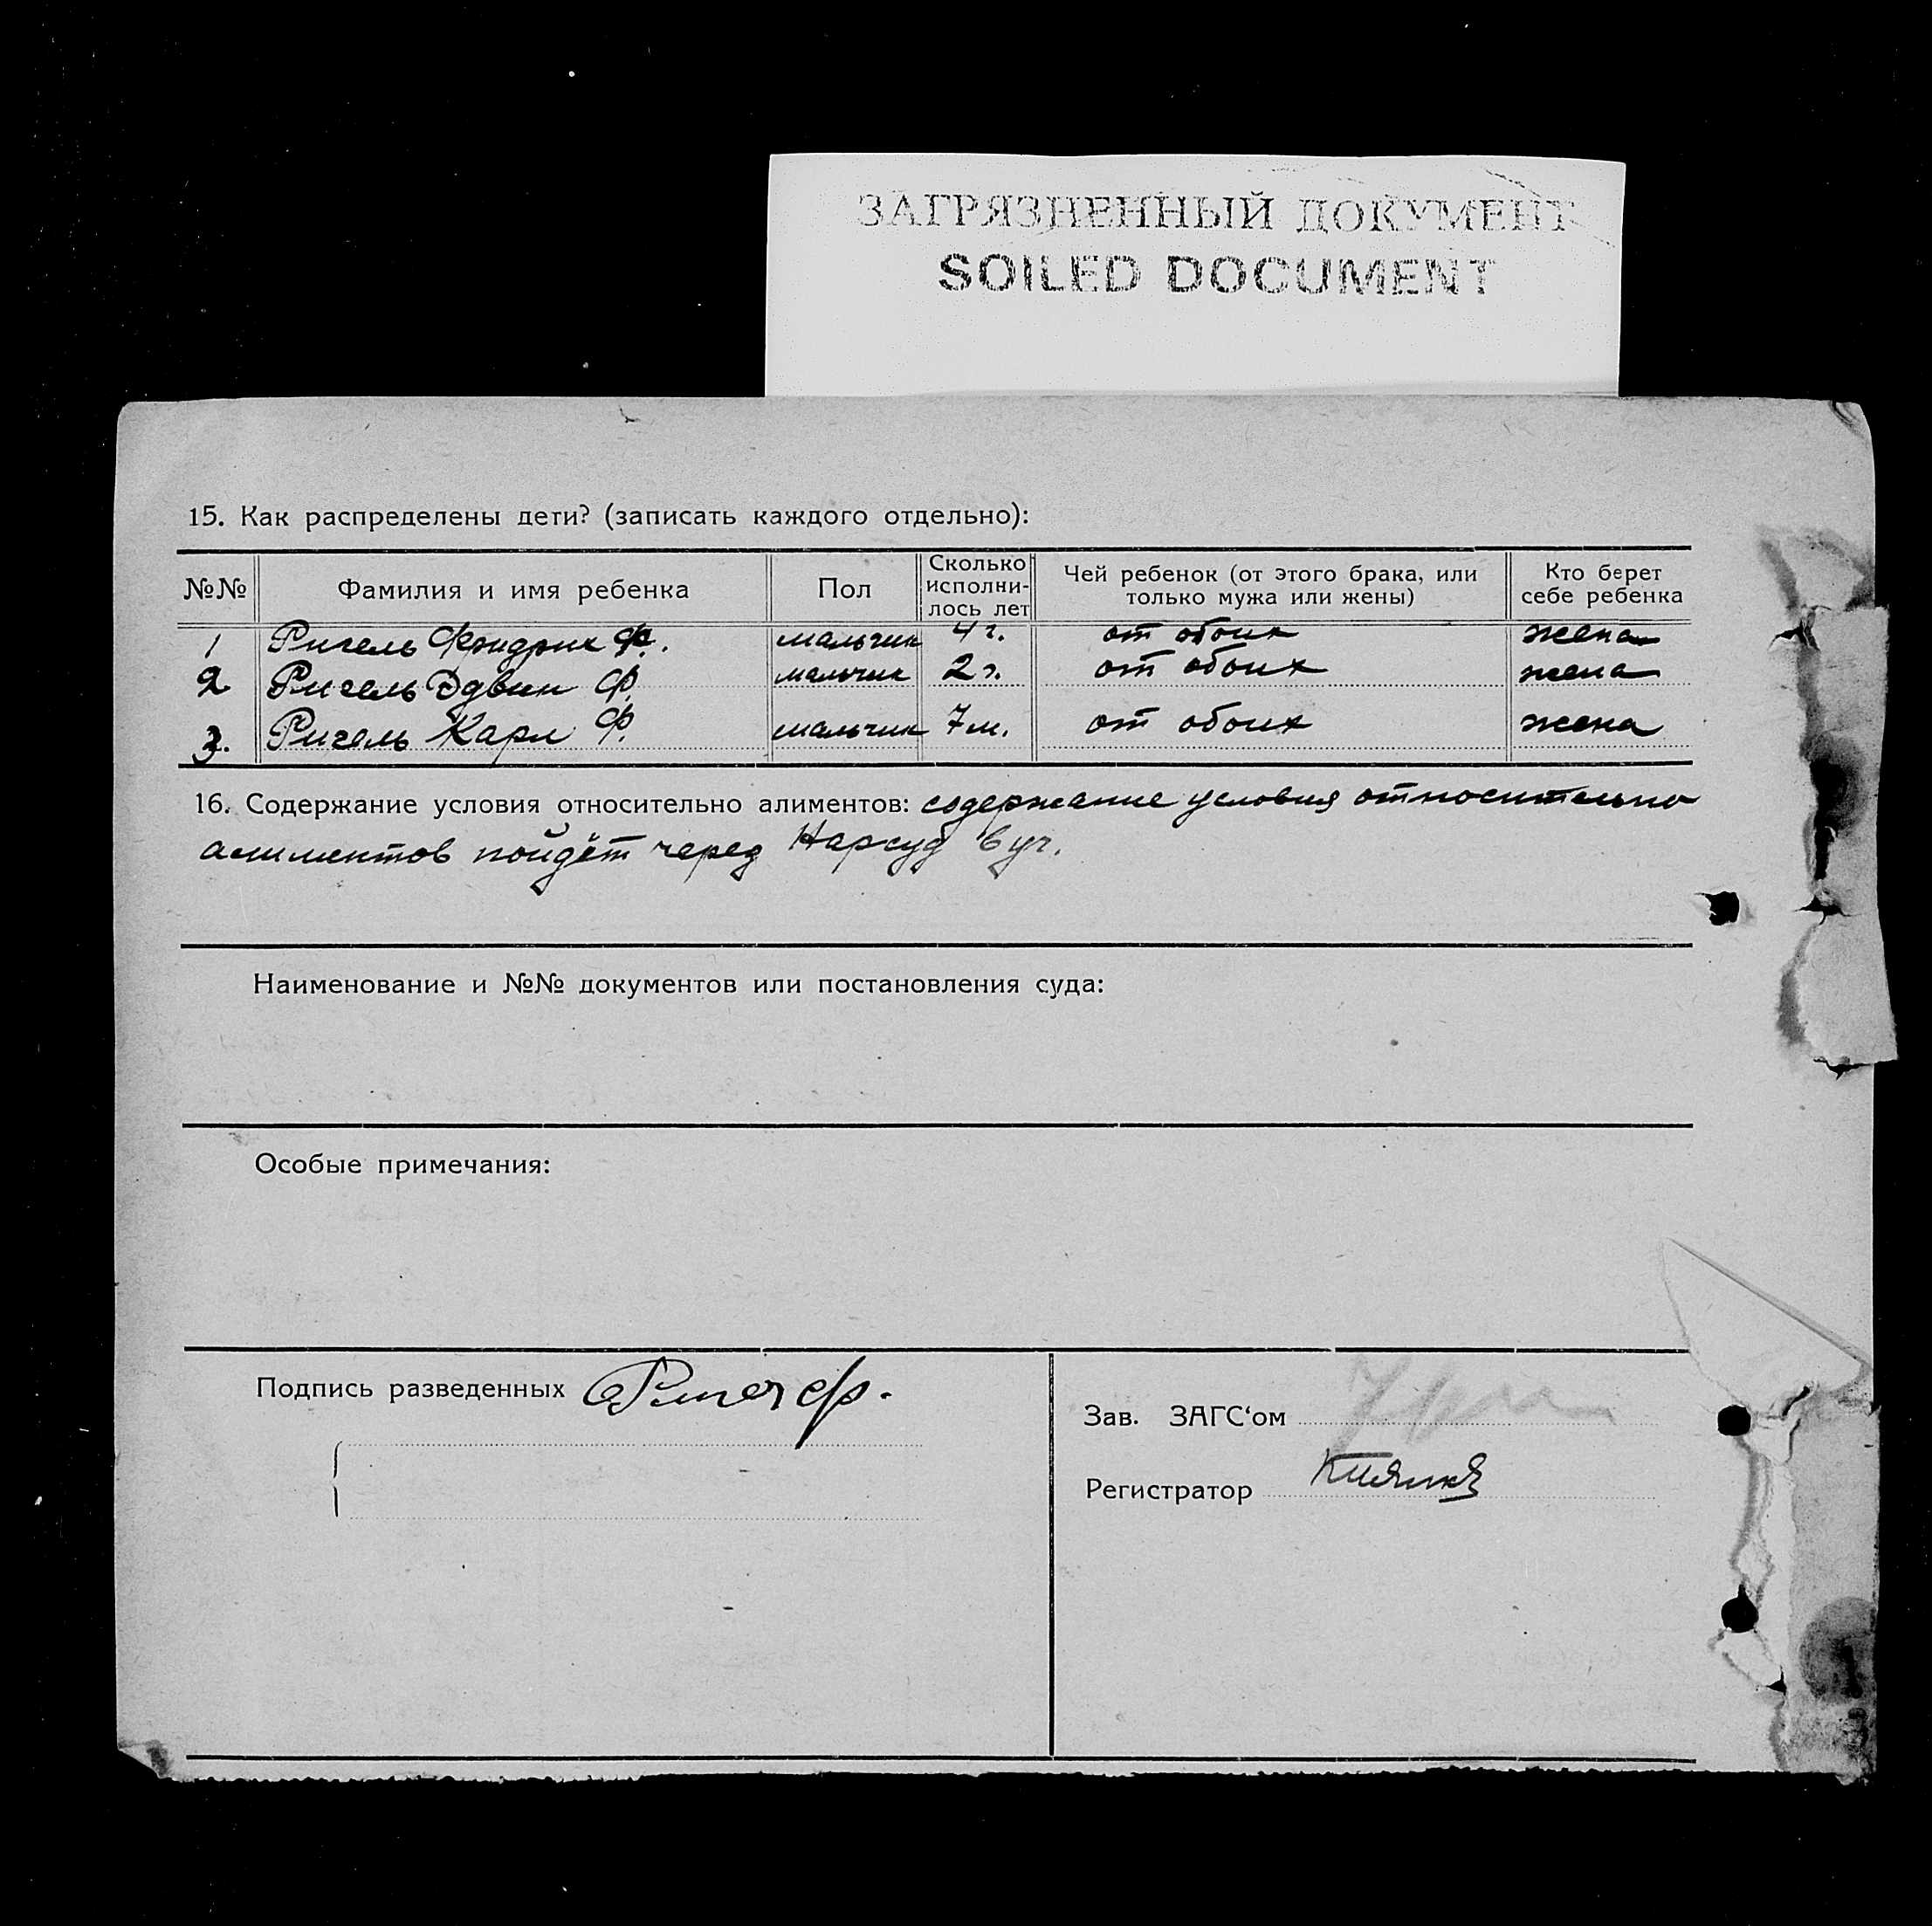 ЗАГРЯЗНЕННЫЙ ДОКУМЕНТ
SOILED DOCUMENT
15. Как распределены дети? (записать каждого отдельно):
№№ Фамилия и имя ребенка Пол Сколько исполни-лось лет Чей ребенок (от этого брака, или только мужа или жены) Кто берет себе ребенка
1 Ригель Фридрих Ф. мальчик 4 г. от обоих жена
2 Ригель Эдвин Ф. мальчик 2 г. от обоих жена
3. Ригель Карл Ф. мальчик 7 м. от обоих жена
16. Содержание условия относительно алиментов: содержание условия относительно
алиментов пойдёт через Нарсуд 6 уч.
Наименование и №№ документов или постановления суда:
Особые примечания:
Подпись разведенных
Зав. ЗАГС‘ом
Регистратор